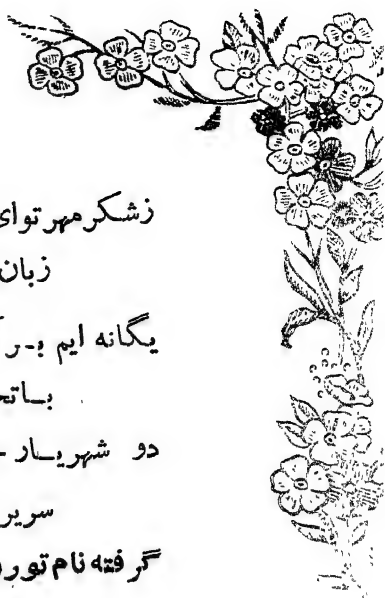 زشکر مهر توای
زبان
یگانه ایم بـر
بـاتح
دو شهریـار
سریر
گرفته نام تو ر